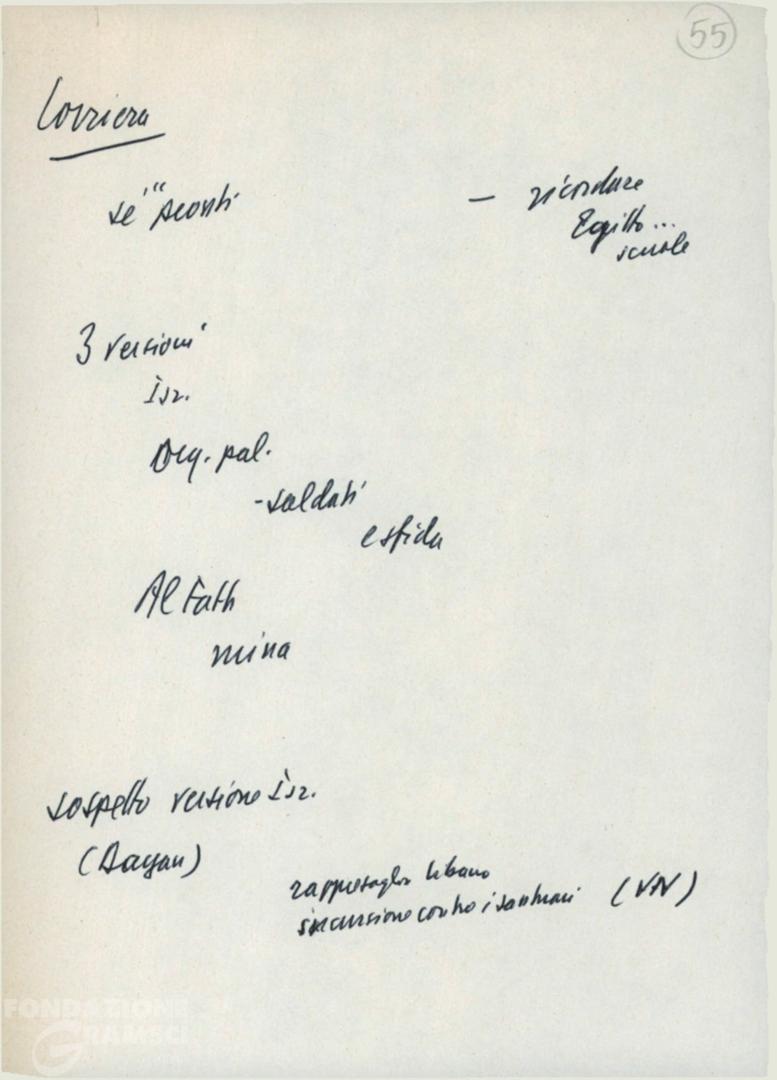 55
Corriera
se "sconti
— ricordare
Egitto...
scuole
3 versioni
Isr.
Org. pal.
- soldati
e sfida
Al Fath
mina
sospetto versione Isr.
(Dayan)
rappresaglia Libano
incursione contro i santuari (VN)
FONDAZIONE
GRAMSCI